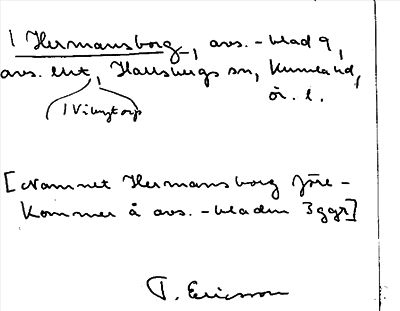 1 Hermansborg, avs.-blad 9,
avs. enl, Hallsbergs sn, Kumla hd,
1 Vibytorp
ör. l.
[Namnet Hermansborg före-
kommer å avs.-bladen 3 ggr]
T. Ericsson